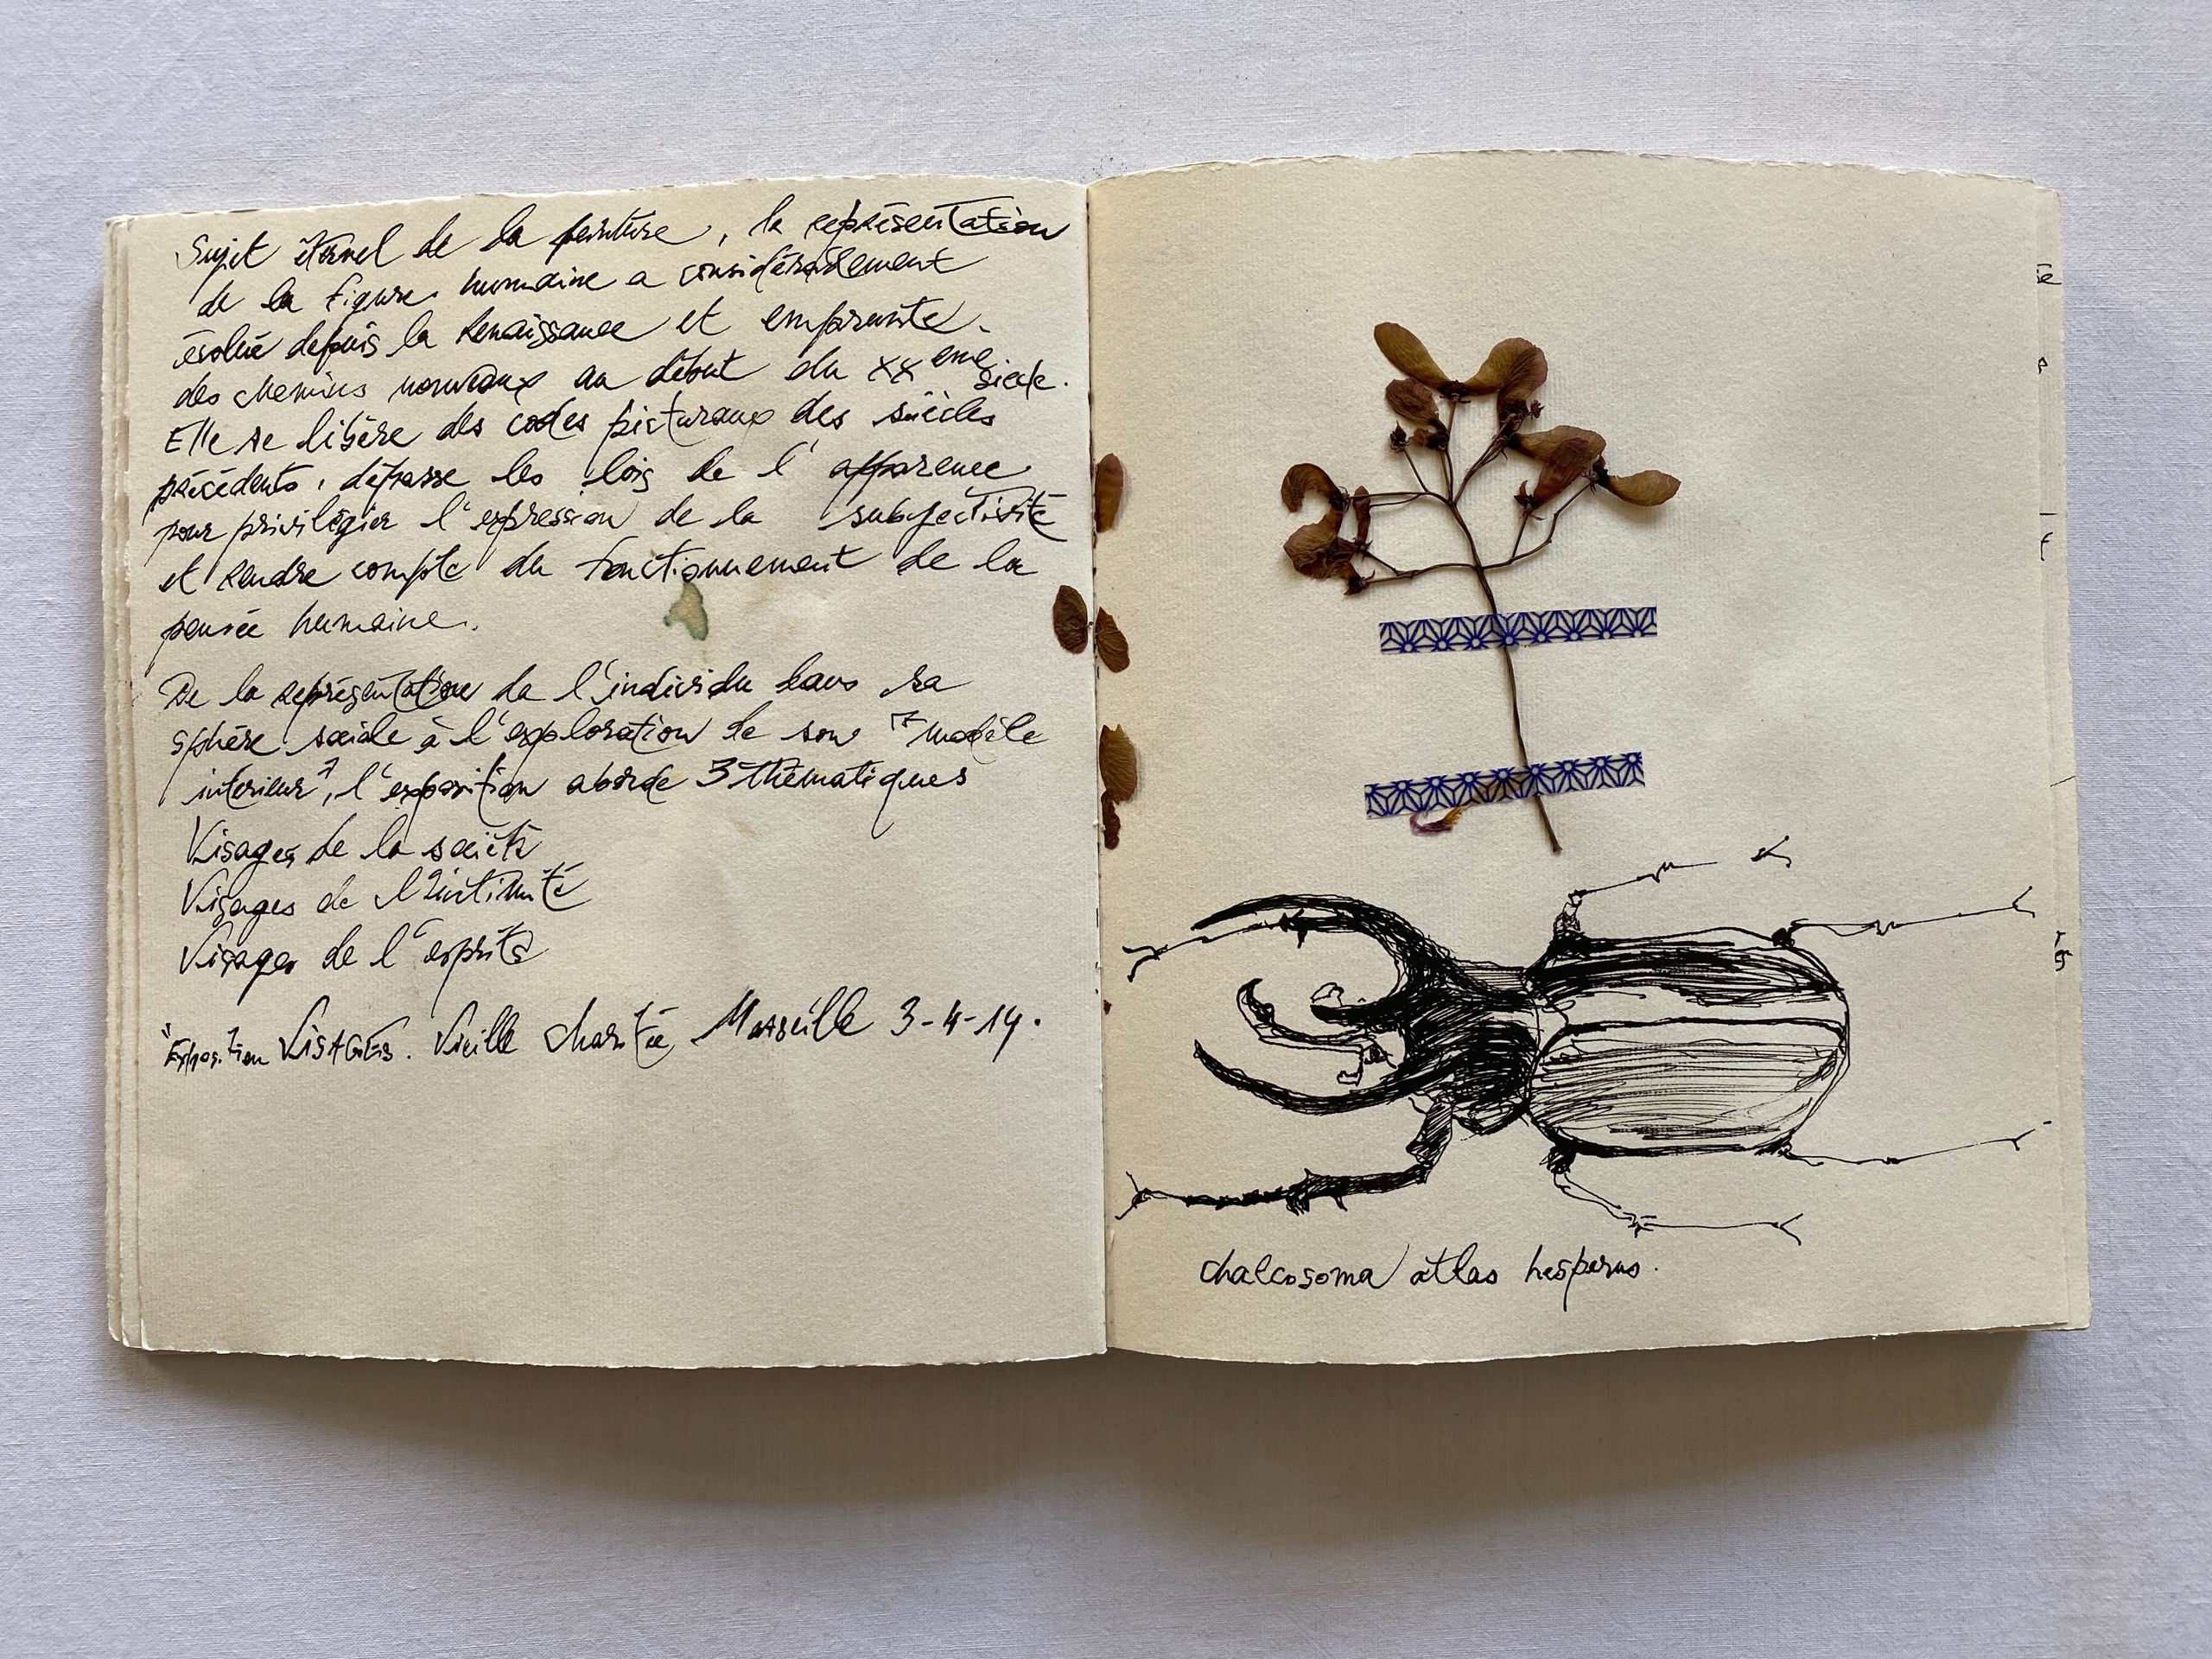 Sujet éternel de la peinture, la représentation
de la figure humaine a considérablement
évolué depuis la Renaissance et emprunte
des chemins nouveaux au début du XXeme siècle.
Elle se libère des codes picturaux des siècles
précédents, dépasse les lois de l'apparence
pour privilégier l'expression de la subjectivité
et rendre compte du fonctionnement de la
pensée humaine.
De la représentation de l'individu dans sa
sphère sociale à l'exploration de son "modèle
interieur", l'exposition aborde 3 thématiques
Visages de la société
Visages de l'intimité
Visages de l'esprit
"Exposition VISAGES. Vieille Charité Marseille 3-4-14.
chalcosoma atlas hesperus.